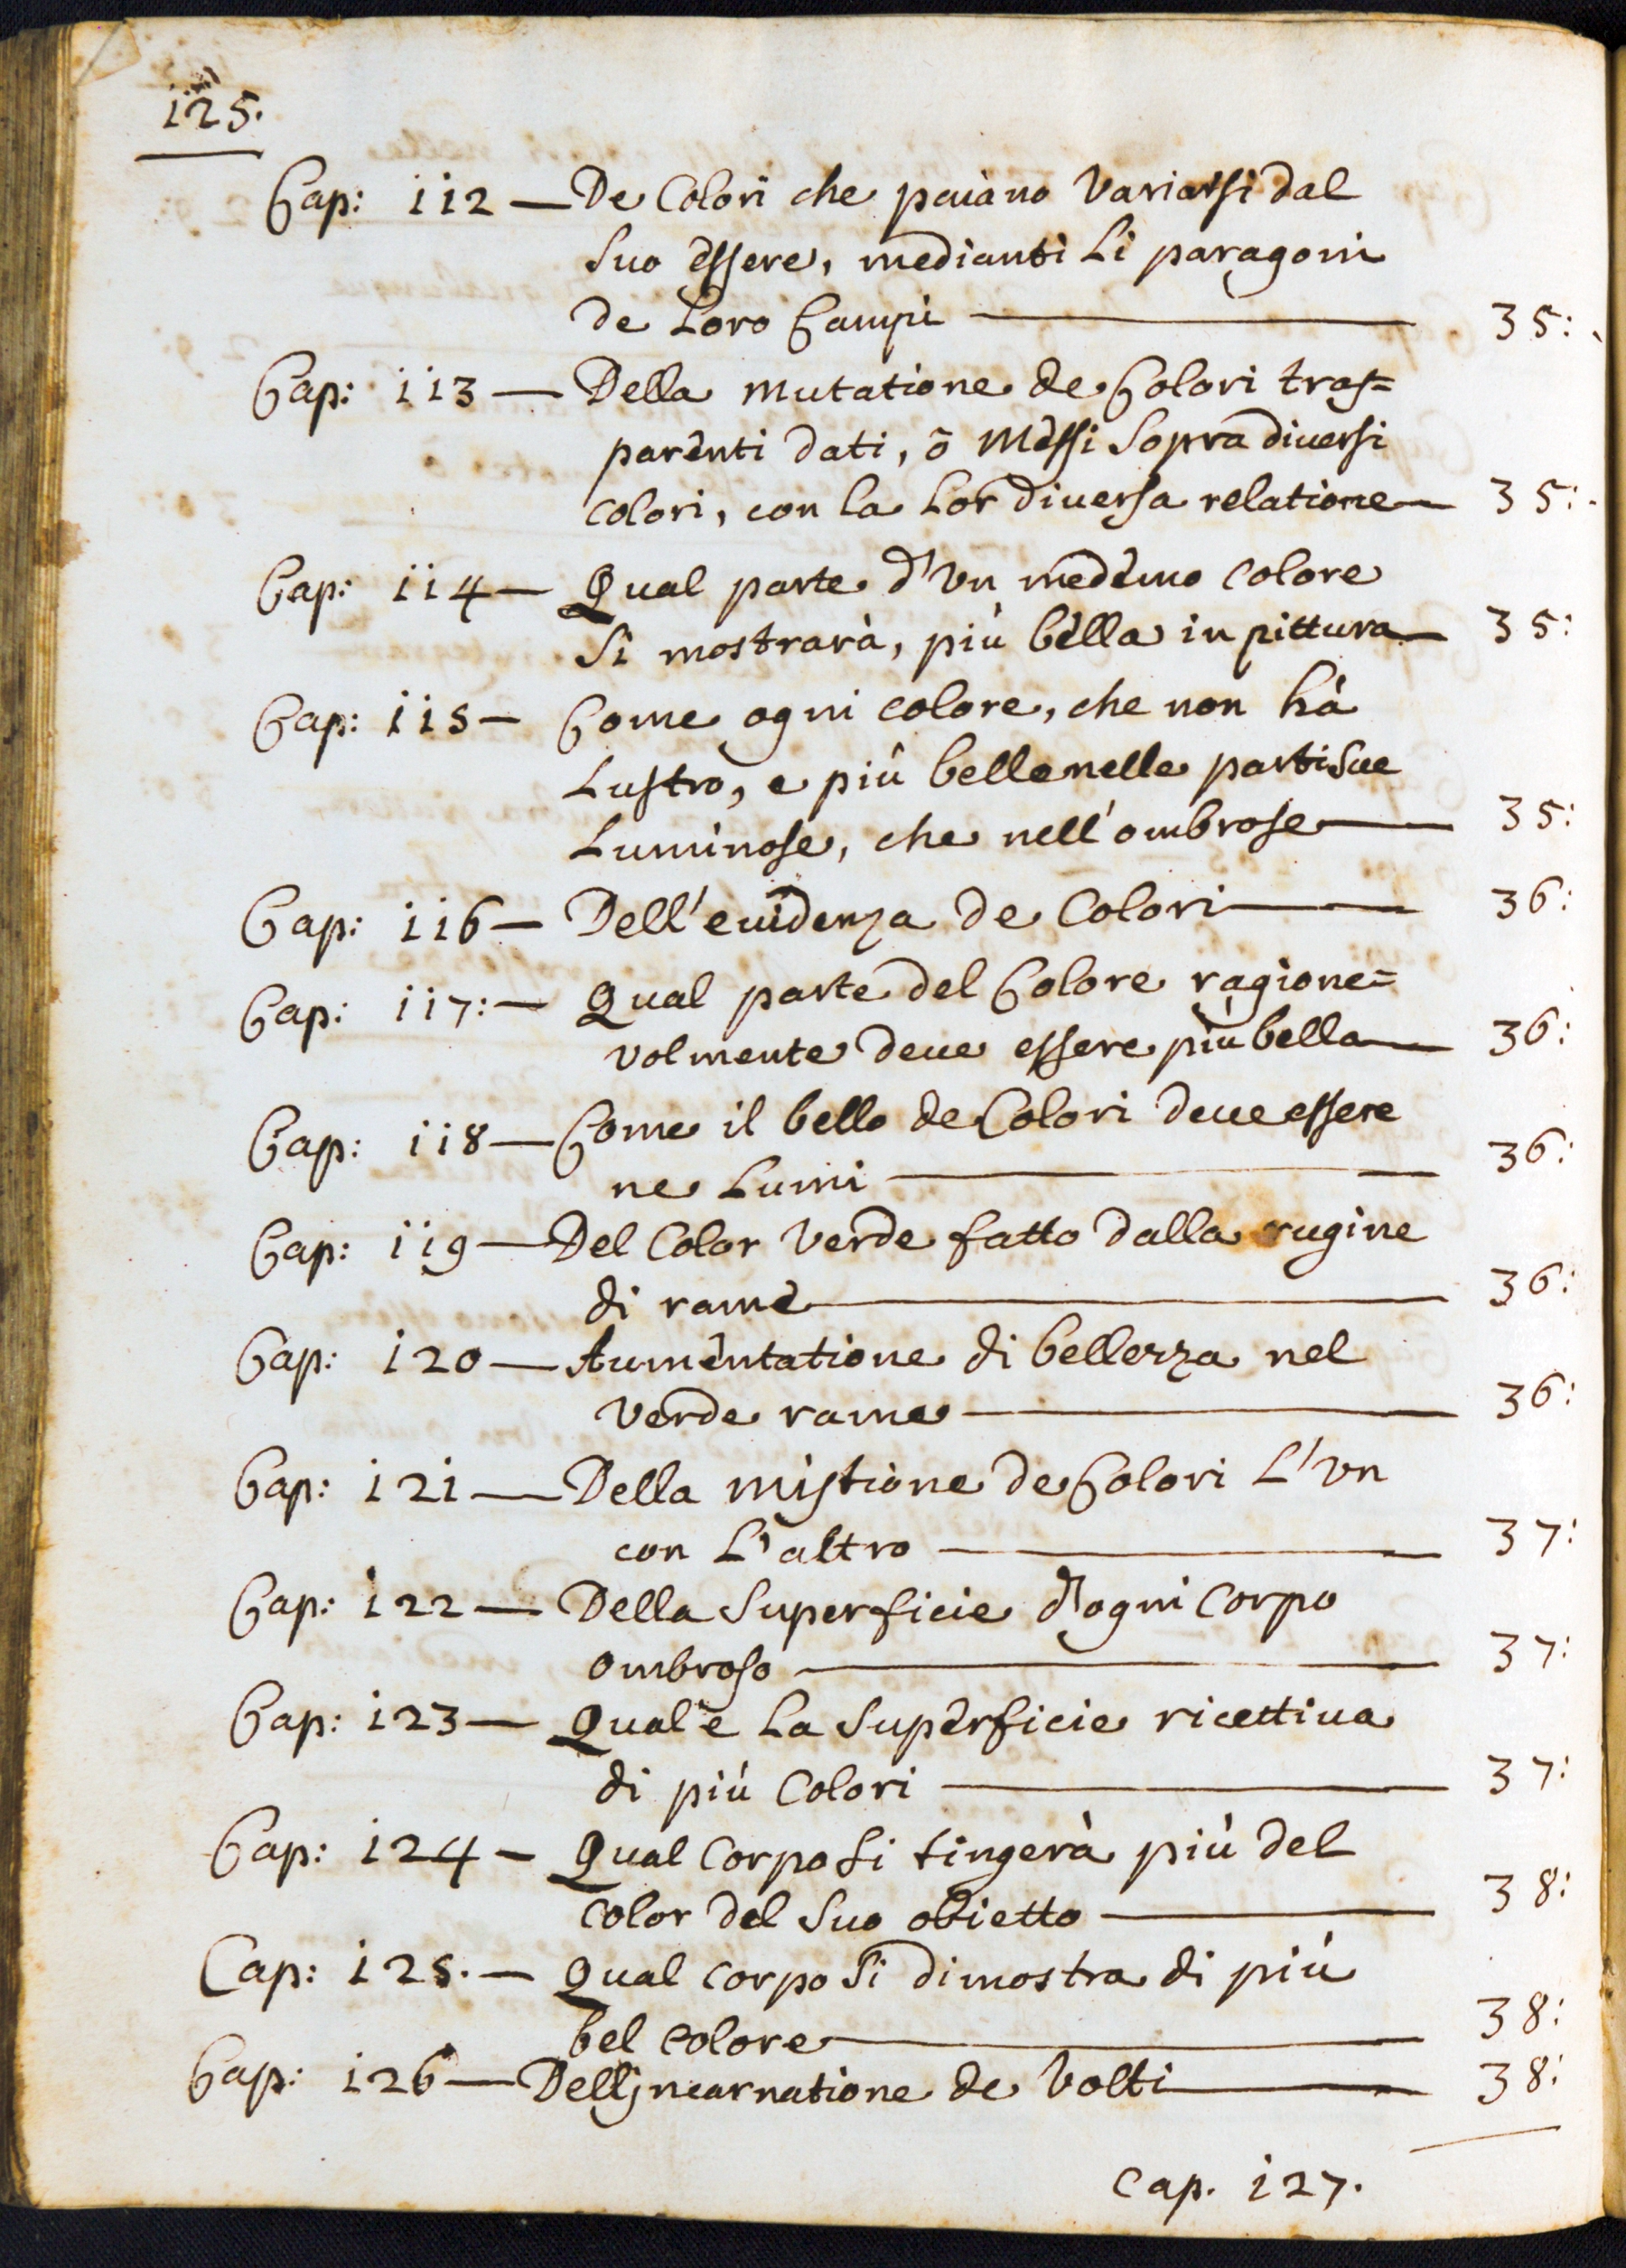 125.
Cap: 112 — De Colori che paiano Variarsi dal
Suo essere, medianti Li paragoni
de Loro Campi — 35:
Cap: 113 — Della mutatione de Colori tras=
parenti dati, ò Messi Sopra diuersi
colori, con la Lor diuersa relatione — 35:
Cap: 114 — Qual parte d'vn medemo colore
Si mostrarà, più bella in pittura — 35:
Cap: 115 — Come ogni colore, che non hà
Lustro, e più bello nelle parti Sue
Luminose, che nell'ombrose — 35:
Cap: 116 — Dell'euidenza de Colori — 36:
Cap: 117: — Qual parte del Colore ragione=
volmente deue essere più bella — 36:
Cap: 118 — Come il bello de Colori deue essere
ne Lumi — 36:
Cap: 119 — Del Color Verde fatto dalla rugine
di rame — 36:
Cap: 120 — Aumentatione di bellezza nel
Verde rame — 36:
Cap: 121 — Della mistione de Colori L'vn
con L'altro — 37:
Cap: 122 — Della Superficie d'ogni Corpo
ombroso — 37:
Cap: 123 — Qual'e La Superficie ricettiua
di più Colori — 37:
Cap: 124 — Qual Corpo Si tingerà più del
Color del Suo obietto — 38:
Cap: 125. — Qual corpo Si dimostra di più
bel colore — 38:
Cap: 126 — Dell'jncarnatione de Volti — 38:
Cap. 127.